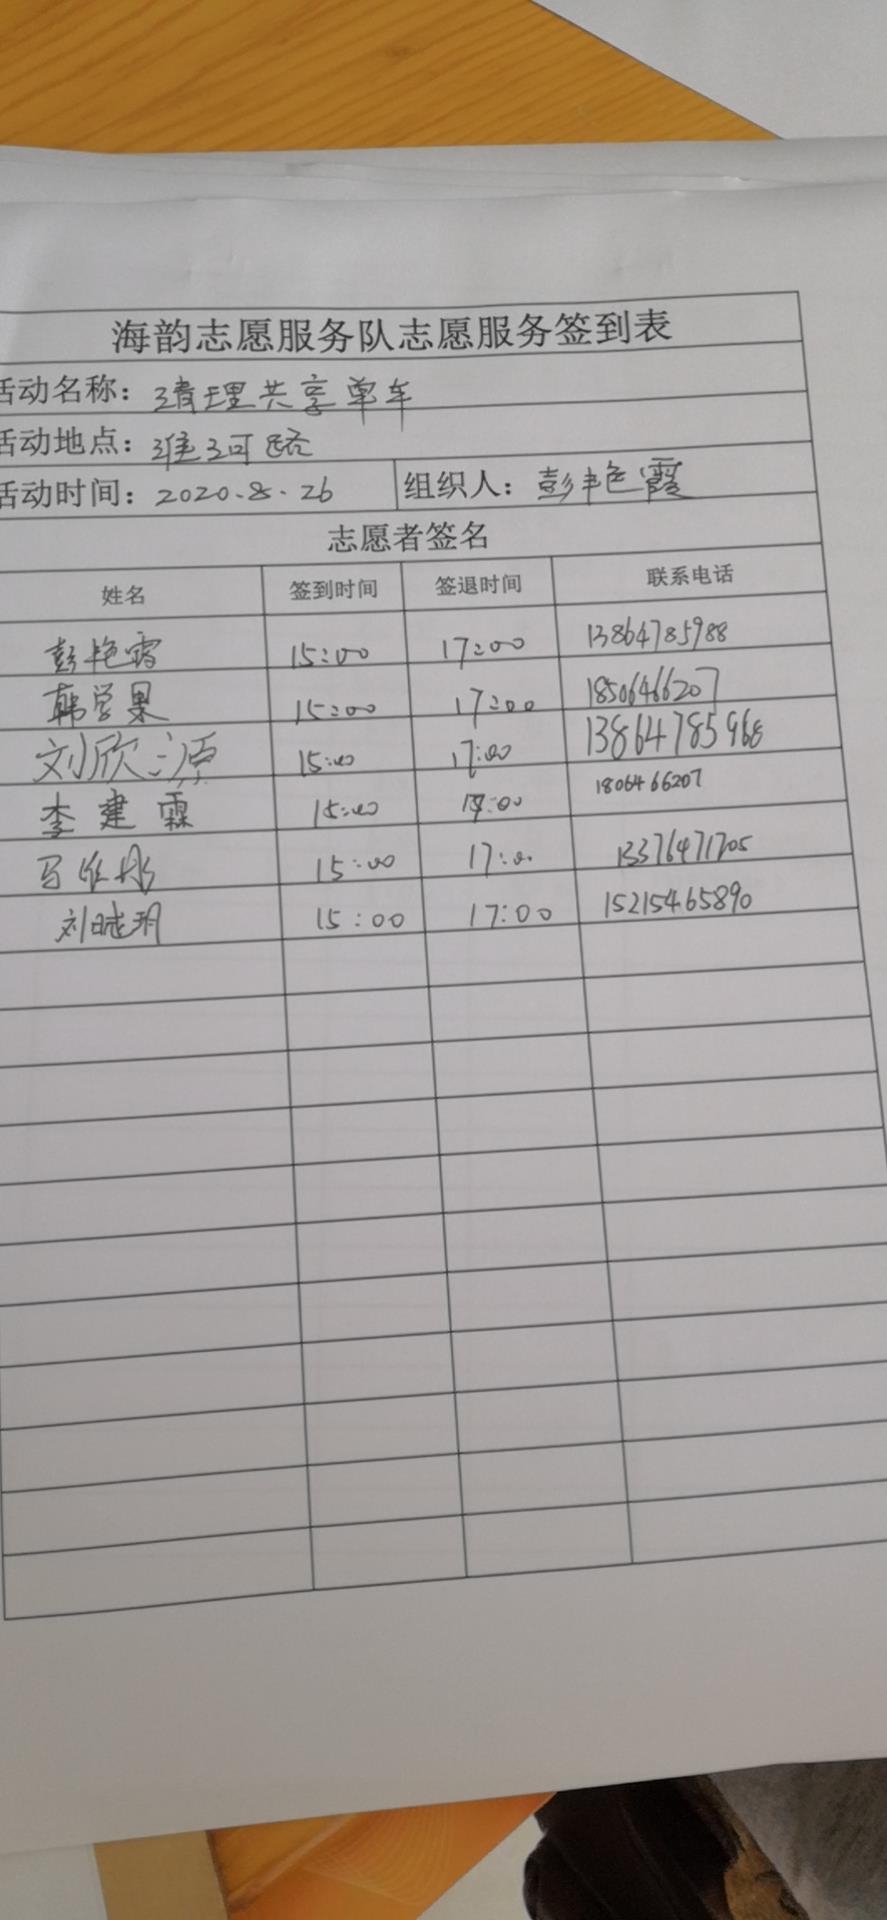 海韵志愿服务队志愿服务签到表
活动名称：清理共享单车
活动地点：淮河路
活动时间：2020.8.26 组织人：彭艳霞
志愿者签名
姓名 签到时间 签退时间 联系电话
彭艳霞 15:00 17:00 13864785988
韩学果 15:00 17:00 18506466207
刘欣源 15:00 17:00 13864785968
李建霖 15:00 17:00 1806466207
马 15:00 17:00 13376471705
刘晓玥 15:00 17:00 15215465890